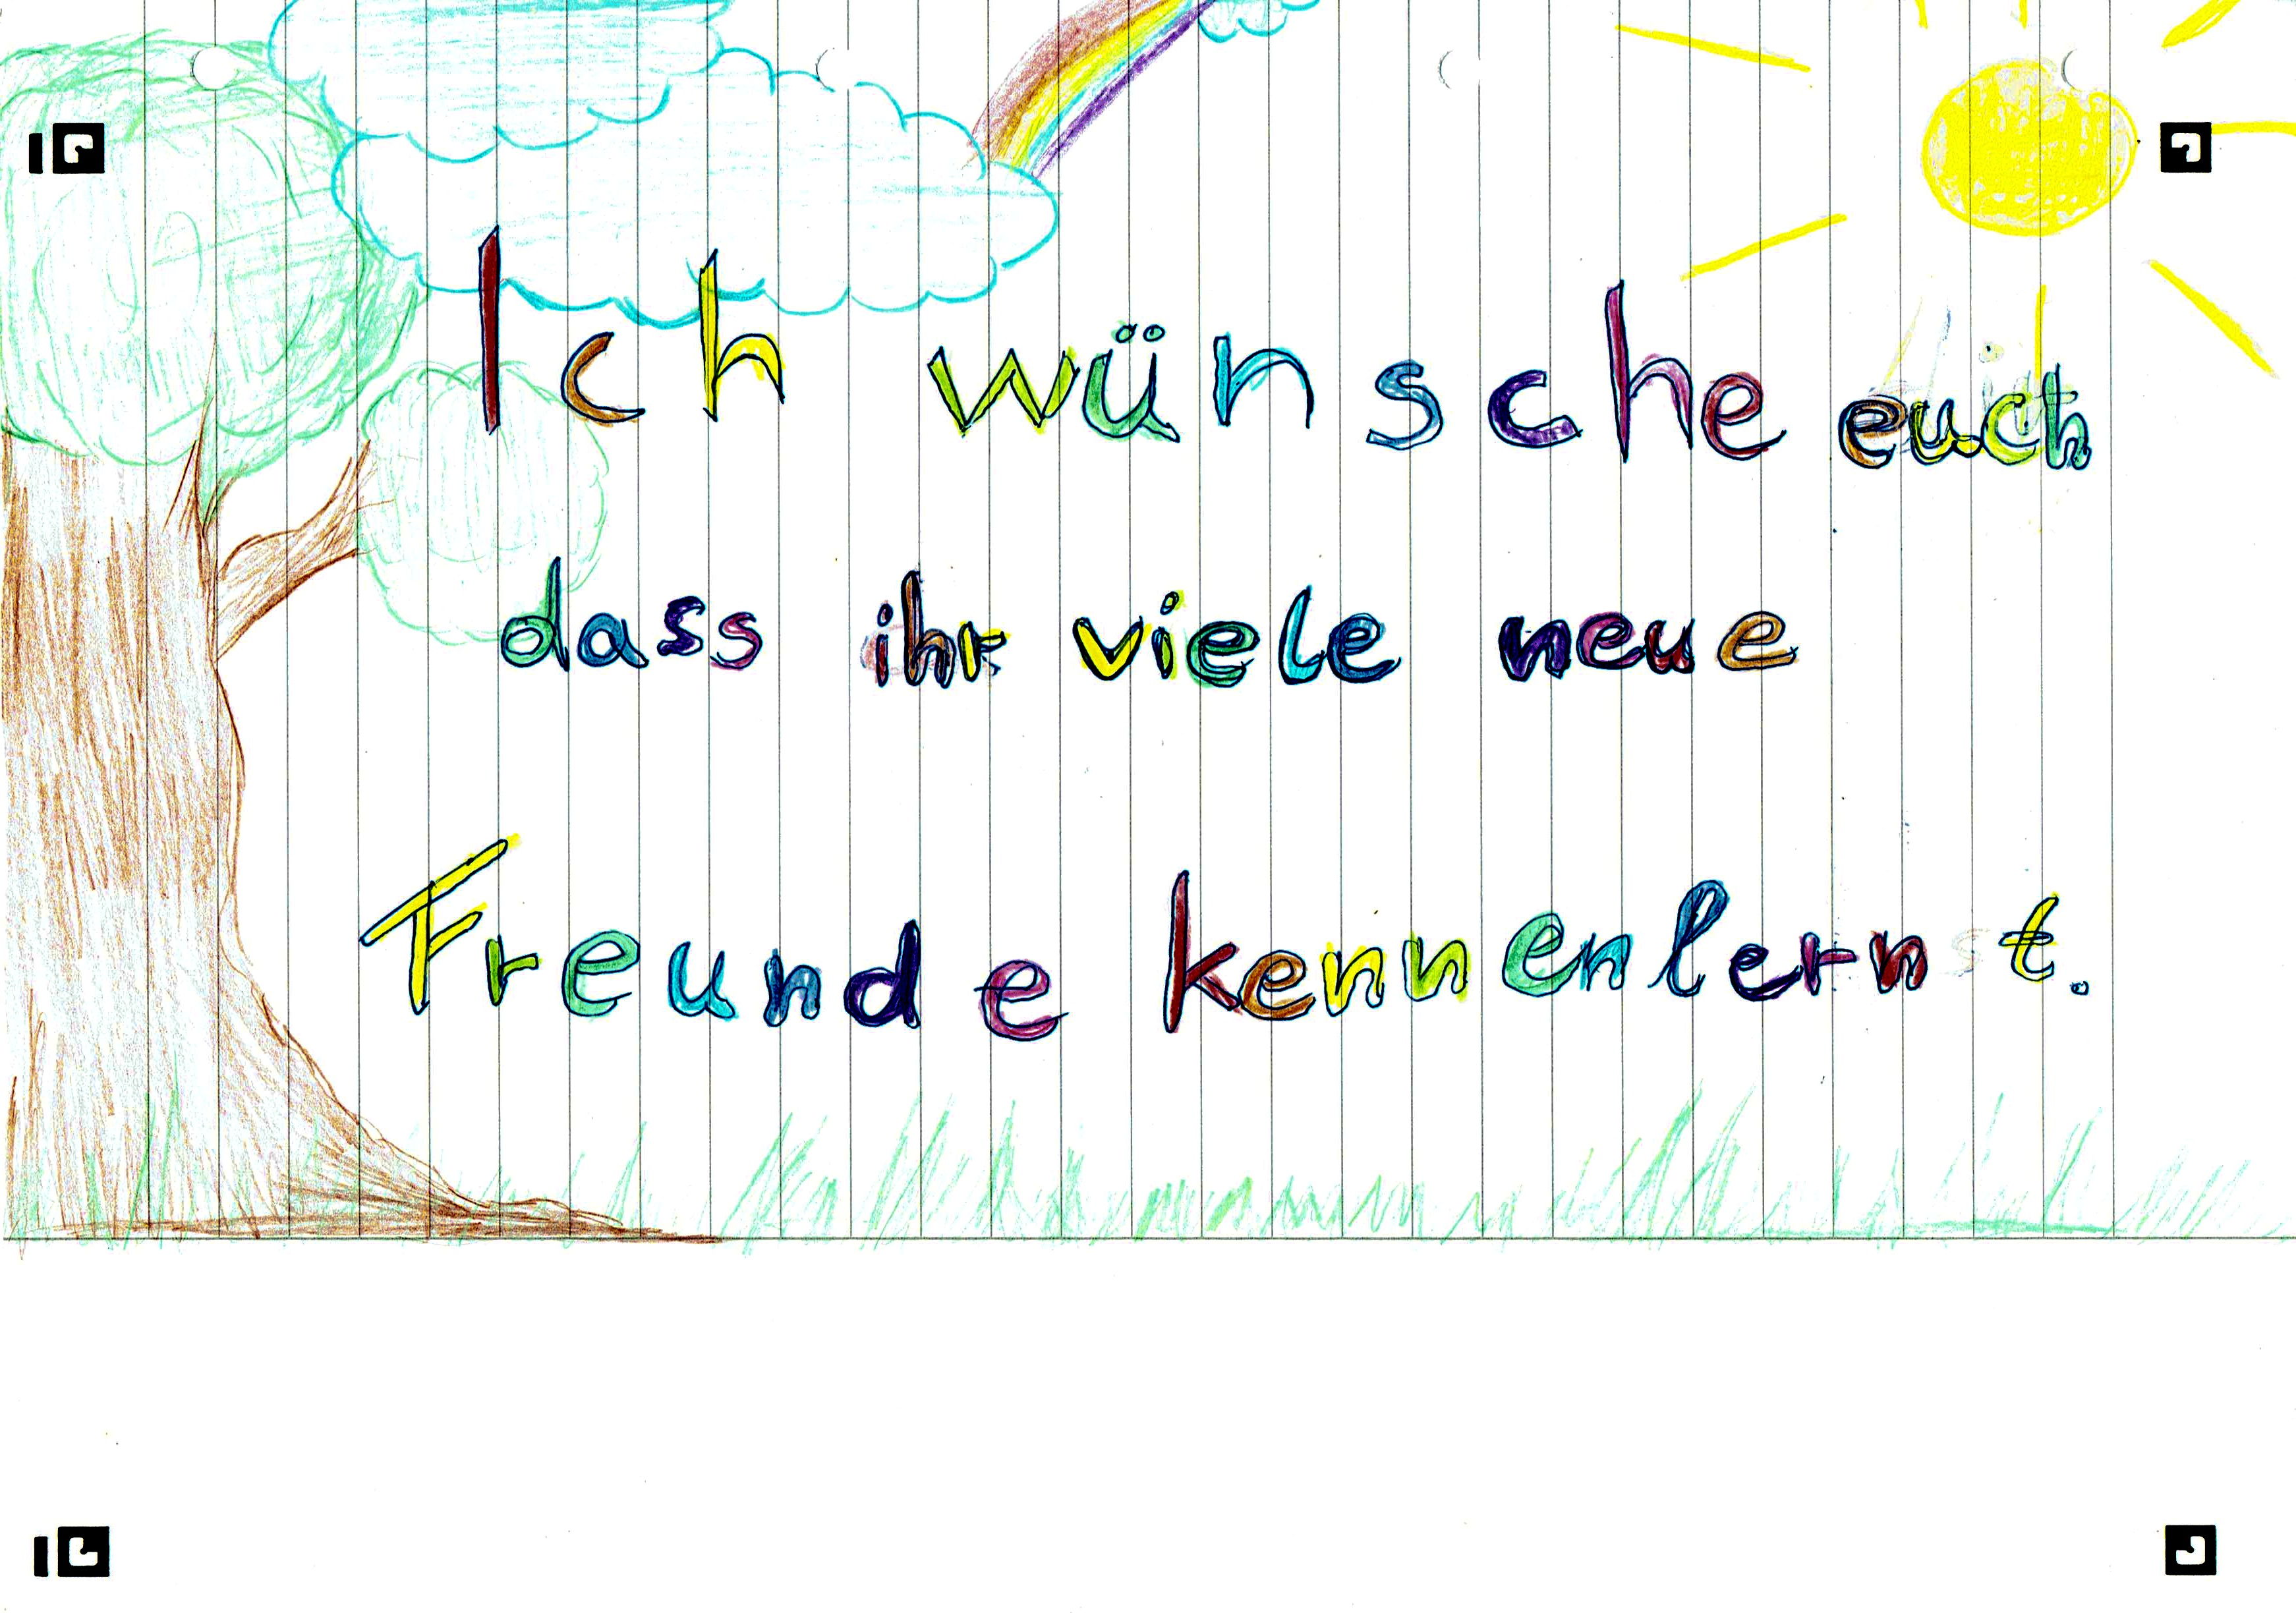 Ich wünsche euch
dass ihr viele neue
Freunde kennenlernt.